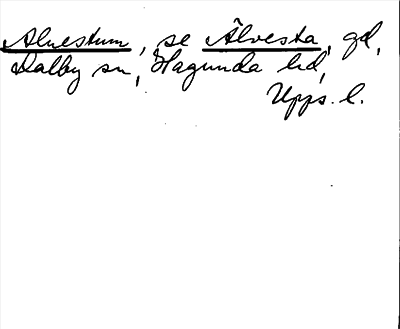 Alvestum, se Älvesta, gd,
Dalby sn, Hagunda hd,
Upps. l.